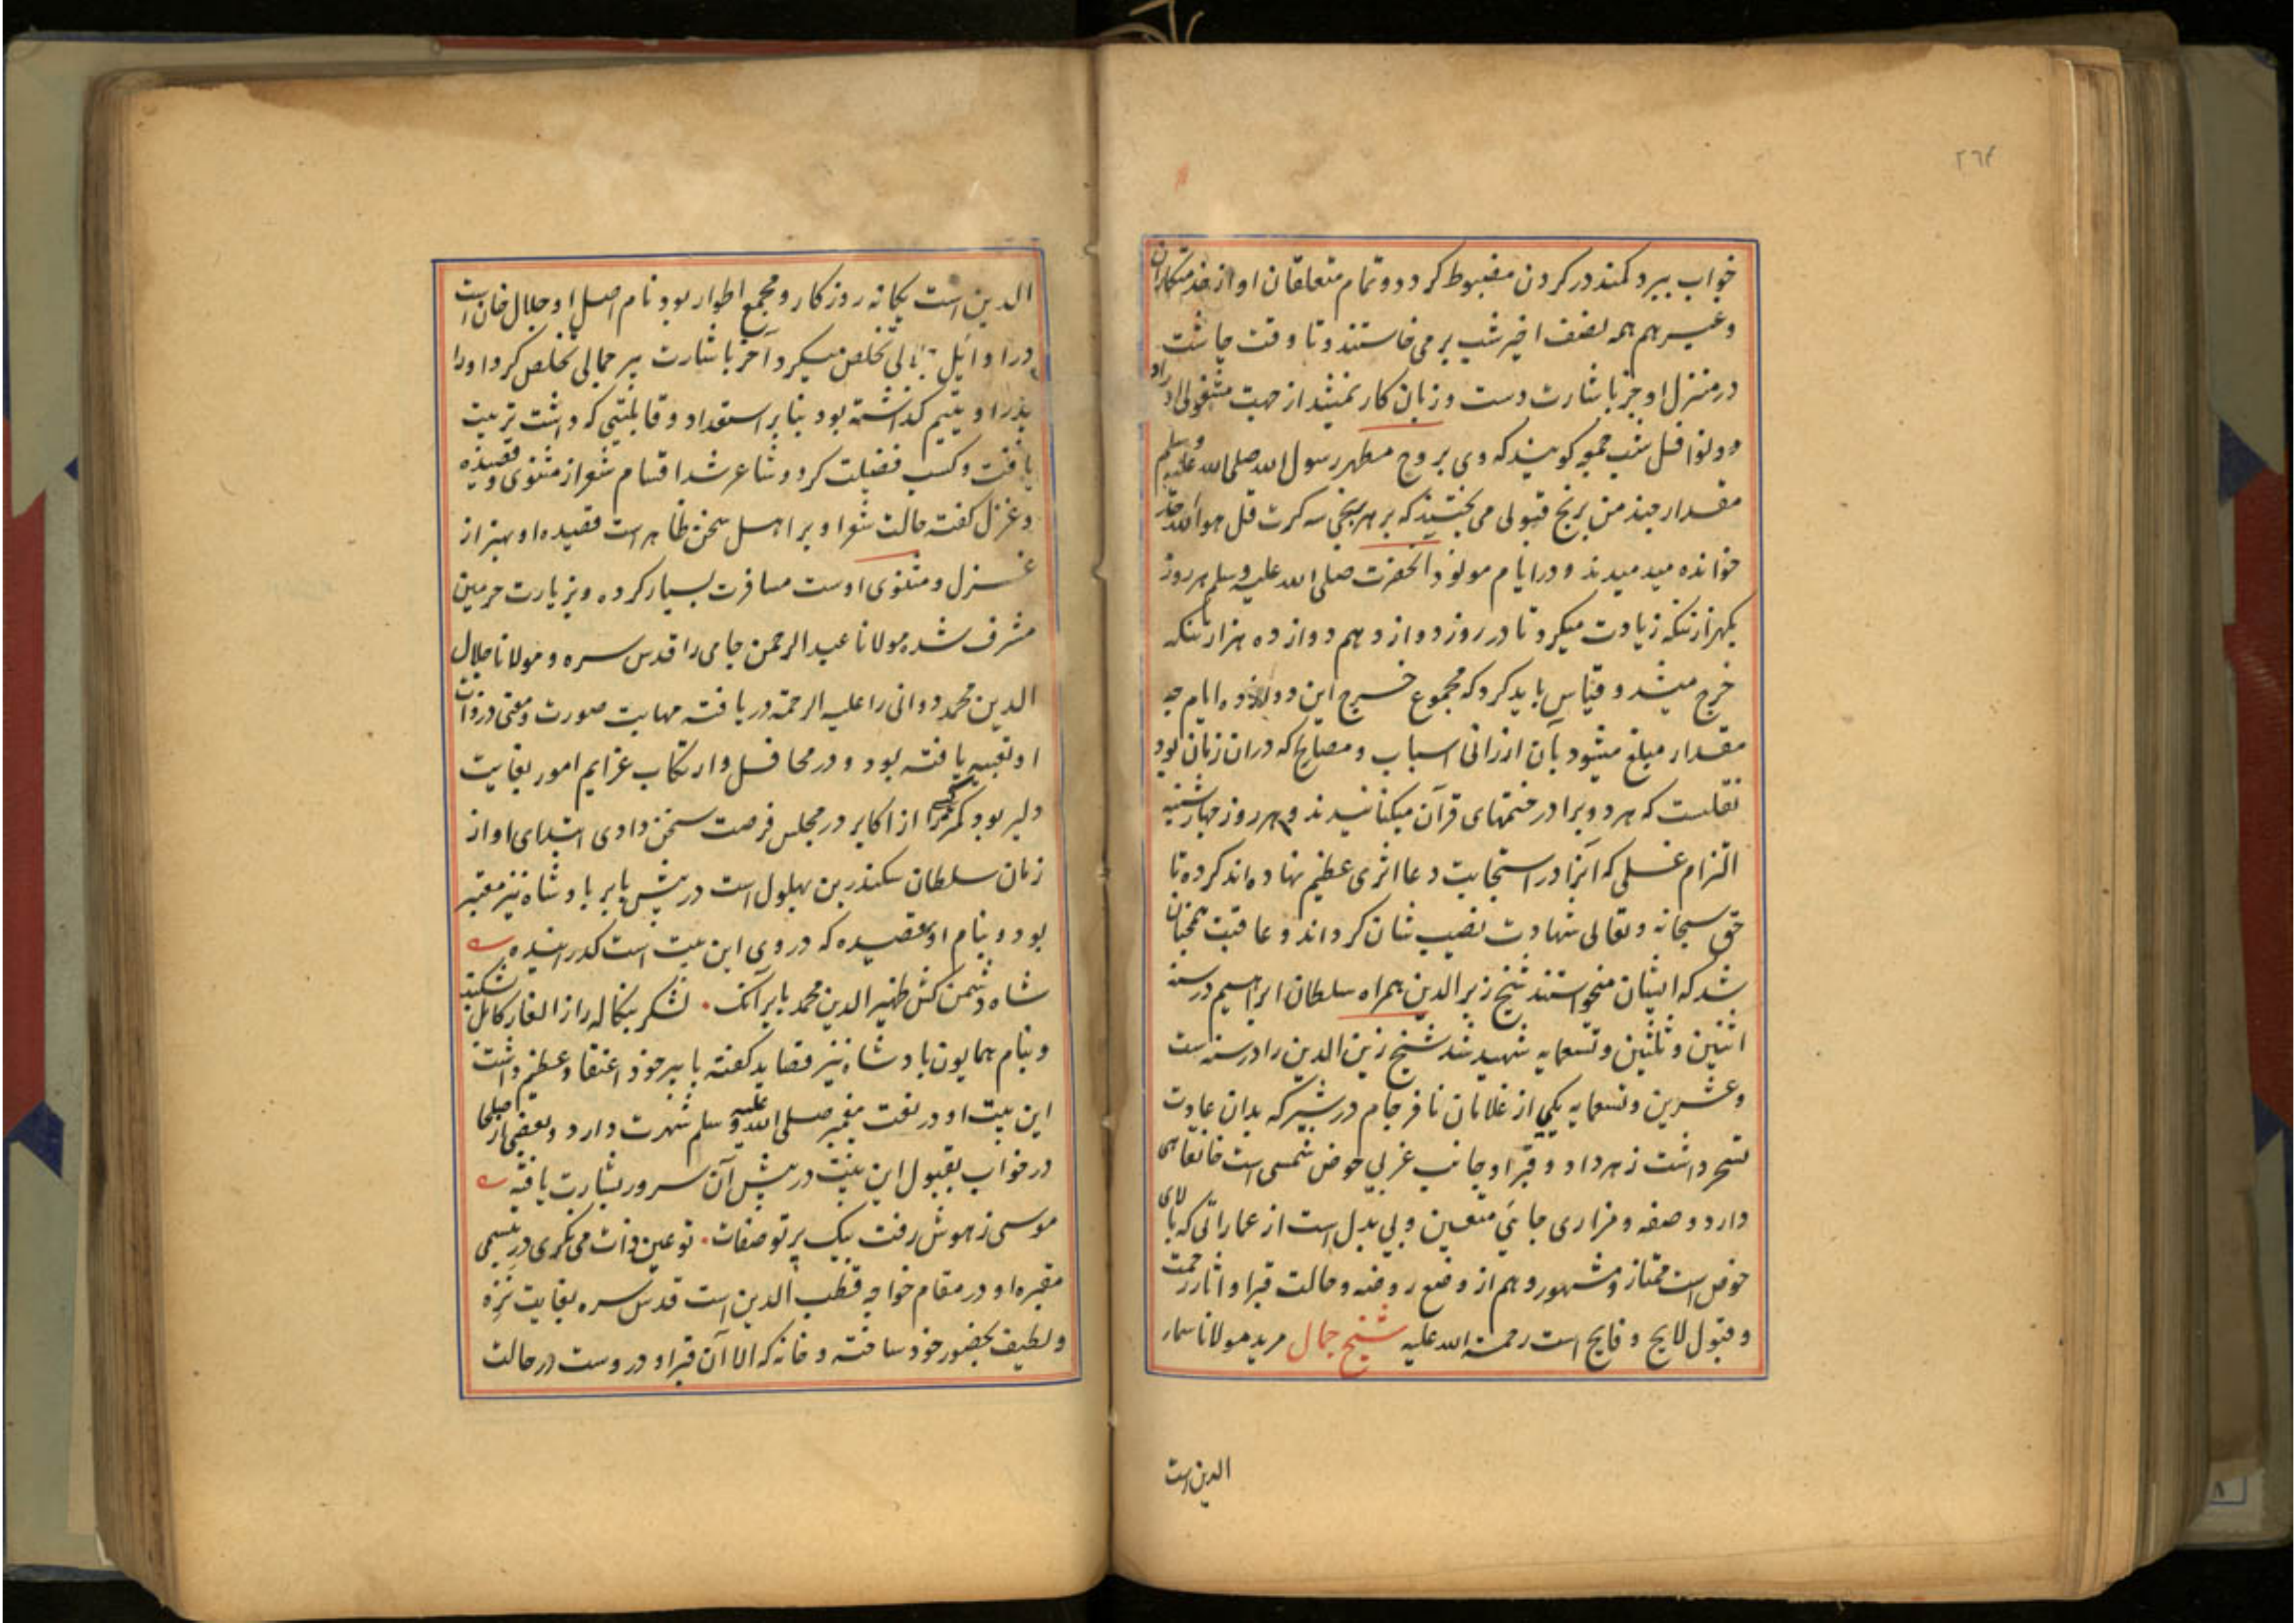 ۲٦۴
خواب ببرد کمند در کردن مضبوط کردد و تمام متعلقان او از خدمتکاران
وغیرهم همه نصف اخیر شب بر می خاستند و تا وقت چاشت
در منزل او جز باشارت دست و زبان کار نمیشد از جهت مشغولی اوراد
و نوافل شب جمعه کویند که وی بر روح مطهر رسول الله صلی الله علیه وسلم
مقدار چند من برنج قبولی می بخشید که بر هر برنجی سه کرت قل هو الله احد
خوانده میدمیدند و در ایام مولود آنحضرت صلی الله علیه وسلم هر روز
یکهزار تنکه زیادت میکرد تا در روز دوازدهم دوازده هزار تنکه
خرج میشد و قیاس باید کرد که مجموع خرج این دوازده ایام چه
مقدار مبلغ میشود بآن ارزانی اسباب و مصالح که دران زمان بود
نقلست که هر دو برادر ختمهای قرآن میکنانیدند و هر روز چهارشنبه
التزام غسلی که آنرا در استجابت دعا اثری عظیم نهاده اند کرده تا
حق سبحانه و تعالی شهادت نصیب شان کرداند و عاقبت همچنان
شد که ایشان میخواستند شیخ زیر الدین همراه سلطان ابراهیم در سنه
اثنین و ثلثین و تسعمایه شهید شد شیخ زین الدین را در سنه ست
وعشرین و تسعمایه یکی از غلامان نافرجام در شیر که بدان عادت
تسحر داشت زهر داد و قبر او جانب غربی حوض شمسی است خانقاهی
دارد و صفه و مزاری جائی متعین و بی بدل است از عماراتی که بالای
حوض است ممتاز و مشهور و هم از وضع روضه و حالت قبر او آثار رحمت
و قبول لایح و فایح است رحمة الله علیه شیخ جمال مرید مولانا سمار
الدین است
الدین است یکانه روزکار و مجمع اطوار بود نام اصل او جلال خان است
در اوایل جلالی تخلص میکرد آخر باشارت پیر جمالی تخلص کرد او را
پدر او یتیم کذاشته بود بنابر استعداد و قابلیتی که داشت تربیت
یافت و کسب فضیلت کرد و شاعر شد اقسام شعر از مثنوی و قصیده
و غزل کفته حالت شعر او بر اهل سخن ظاهر است قصیده او بهتر از
غزل و مثنوی اوست مسافرت بسیار کرده و بزیارت حرمین
مشرف شد مولانا عبدالرحمن جامی را قدس سره و مولانا جلال
الدین محمد دوانی را علیه الرحمة دریافته مهابت صورت و معنی در ذات
او تعبیه یافته بود و در محافل و ارتکاب عزایم امور بغایت
دلیر بود کمتر کسی را از اکابر در مجلس فرصت سخن دادی ابتدای او از
زمان سلطان سکندر بن بهلول است در پیش بابر بادشاه نیز معتبر
بود و بنام او قصیده که در وی این بیت است کدرانیده
شاه دشمن کش ظهیر الدین محمد بابر آنک . لشکر بنکاله را از الغار کابل بشکند
و بنام همایون بادشاه نیز قصاید کفته با پیر خود اعتقاد عظیم داشت
این بیت او در نعت پیغمبر صلی الله علیه و سلم شهرت دارد و بعضی از صلحا
در خواب بقبول این بیت در پیش آن سرور بشارت یافته
موسی ز هوش رفت بیک پرتو صفات . تو عین ذات می نکری در تبسمی
مقبره او در مقام خواجه قطب الدین است قدس سره بغایت نزه
و لطیف بحضور خود ساخته و خانه که الا آن قبر او در وست در حالت